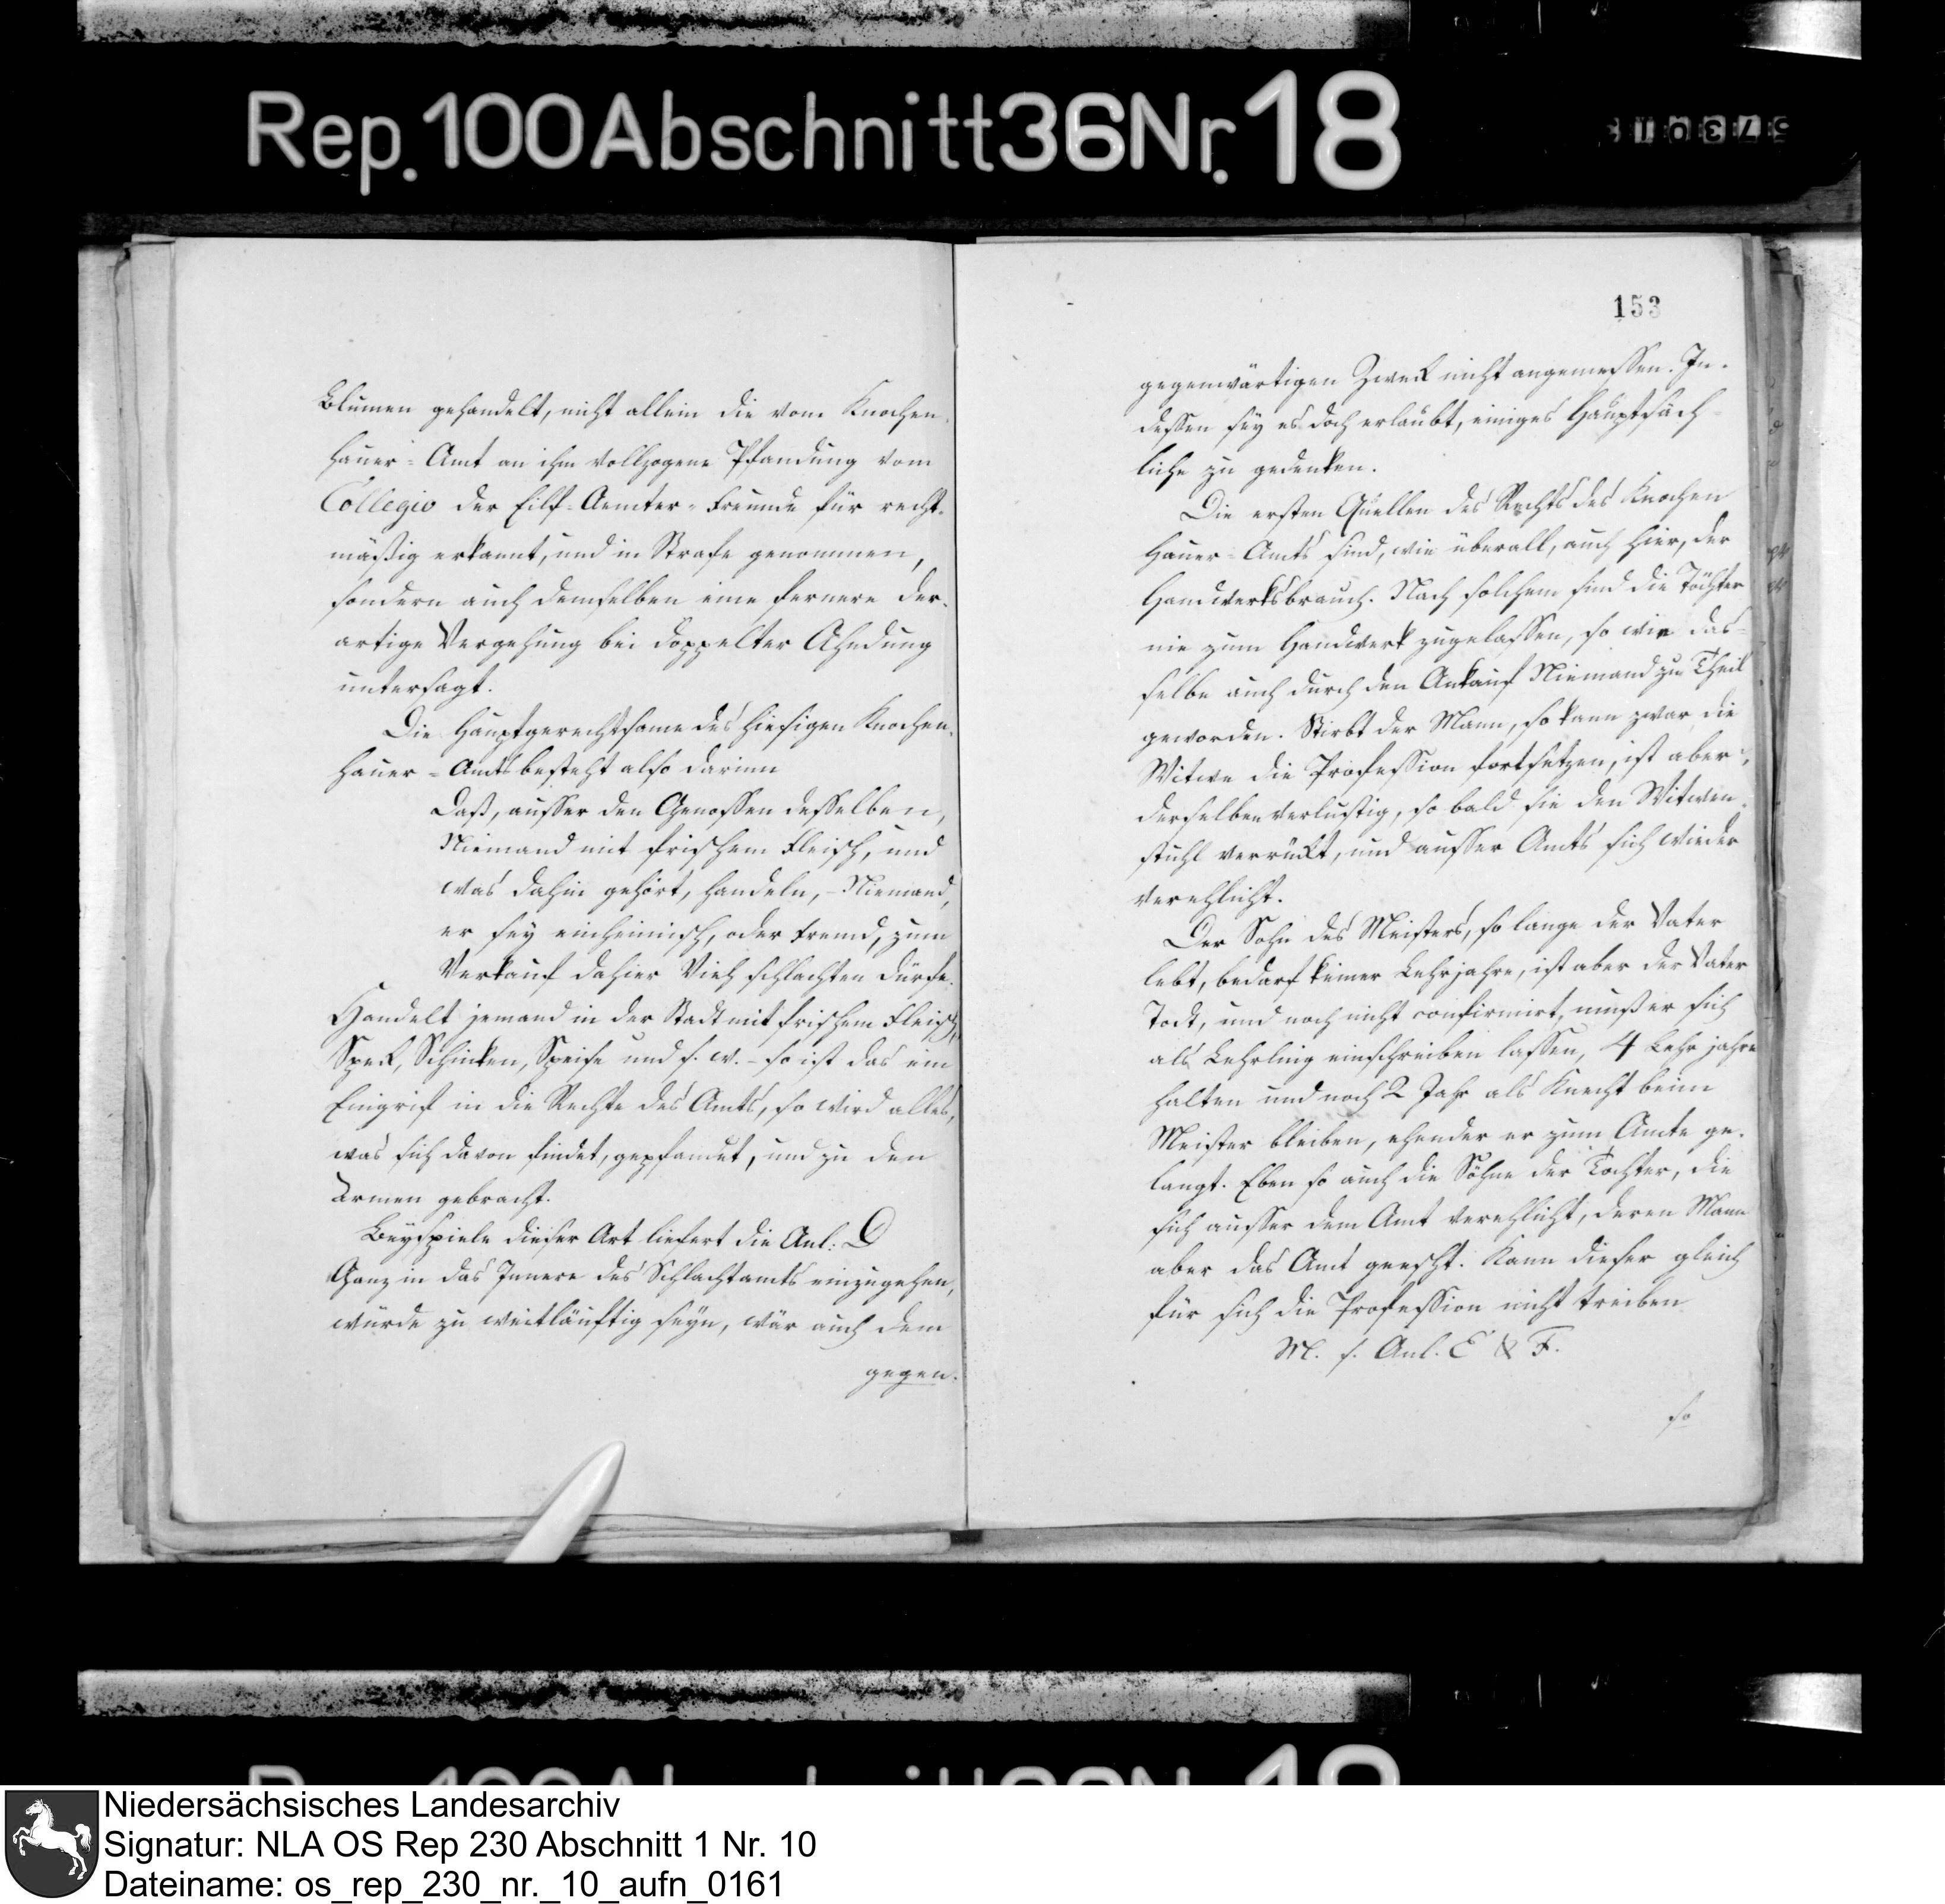 Rep. 100 Abschnitt 36 Nr. 18
Blumen gehandelt, nicht allein die vom Knochen-
hauer-Amt an ihm vollzogene Pfandung vom
Collegio der Eilf-Aemter-Freunde für recht-
mäßig erkannt, und in Strafe genommen,
sondern auch demselben eine fernere der-
artige Vergehung bei doppelter Ahndung
untersagt.
Die Hauptgerechtsame des hiesigen Knochen-
hauer-Amts besteht also darinn
Daß, ausser den Genossen desselben,
Niemand mit frischem Fleisch, und
was dahin gehört, handeln, - Niemand,
er sey einheimisch, oder fremd, zum
Verkauf dahier Vieh schlachten dürfe.
Handelt jemand in der Stadt mit frischem Fleisch,
Speck, Schinken, Speise und s. w. - so ist das ein
Eingrif in die Rechte des Amts, so wird alles,
was sich davon findet, gepfandet, und zu den
Armen gebracht.
Beyspiele dieser Art liefert die Anl: D
Ganz in das Innere des Schlachtamts einzugehen,
würde zu weitläuftig seyn, wär auch dem
gegen-
153
gegenwärtigen Zweck nicht angemessen. In-
dessen sey es doch erlaubt, einiges Hauptsäch-
liche zu gedenken.
Die ersten Quellen des Rechts des Knochen
hauer-Amts sind, wie überall, auch hier, der
Handwerksbrauch. Nach solchem sind die Töchter
nie zum Handwerk zugelassen, so wie das-
selbe auch durch den Ankauf Niemand zu Theil
geworden. Stirbt der Mann, so kann zwar die
Witwe die Profession fortsetzen, ist aber,
derselben verlustig, so bald sie den Witwen-
stuhl verrückt, und ausser Amts sich wieder
verehlicht.
Der Sohn des Meisters, so lange der Vater
lebt, bedarf keiner Lehrjahre, ist aber der Vater
Todt, und noch nicht confirmirt, muß er sich
als Lehrling einschreiben lassen, 4 Lehrjahre
halten und noch 2 Jahr als Knecht beim
Meister bleiben, ehender er zum Amte ge-
langt. Eben so auch die Söhne der Tochter, die
sich ausser dem Amt verehlicht, deren Mann
aber das Amt geescht. Kann dieser gleich
für sich die Profession nicht treiben
M. s. Anl. E & F.
so
Niedersächsisches Landesarchiv
Signatur: NLA OS Rep 230 Abschnitt 1 Nr. 10
Dateiname: os_rep_230_nr._10_aufn_0161